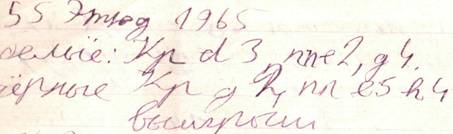 55 Этюд 1965
белые: Кр d3, пп e2, g4.
чёрные Кр g2, пп e5 h4
выигрыш